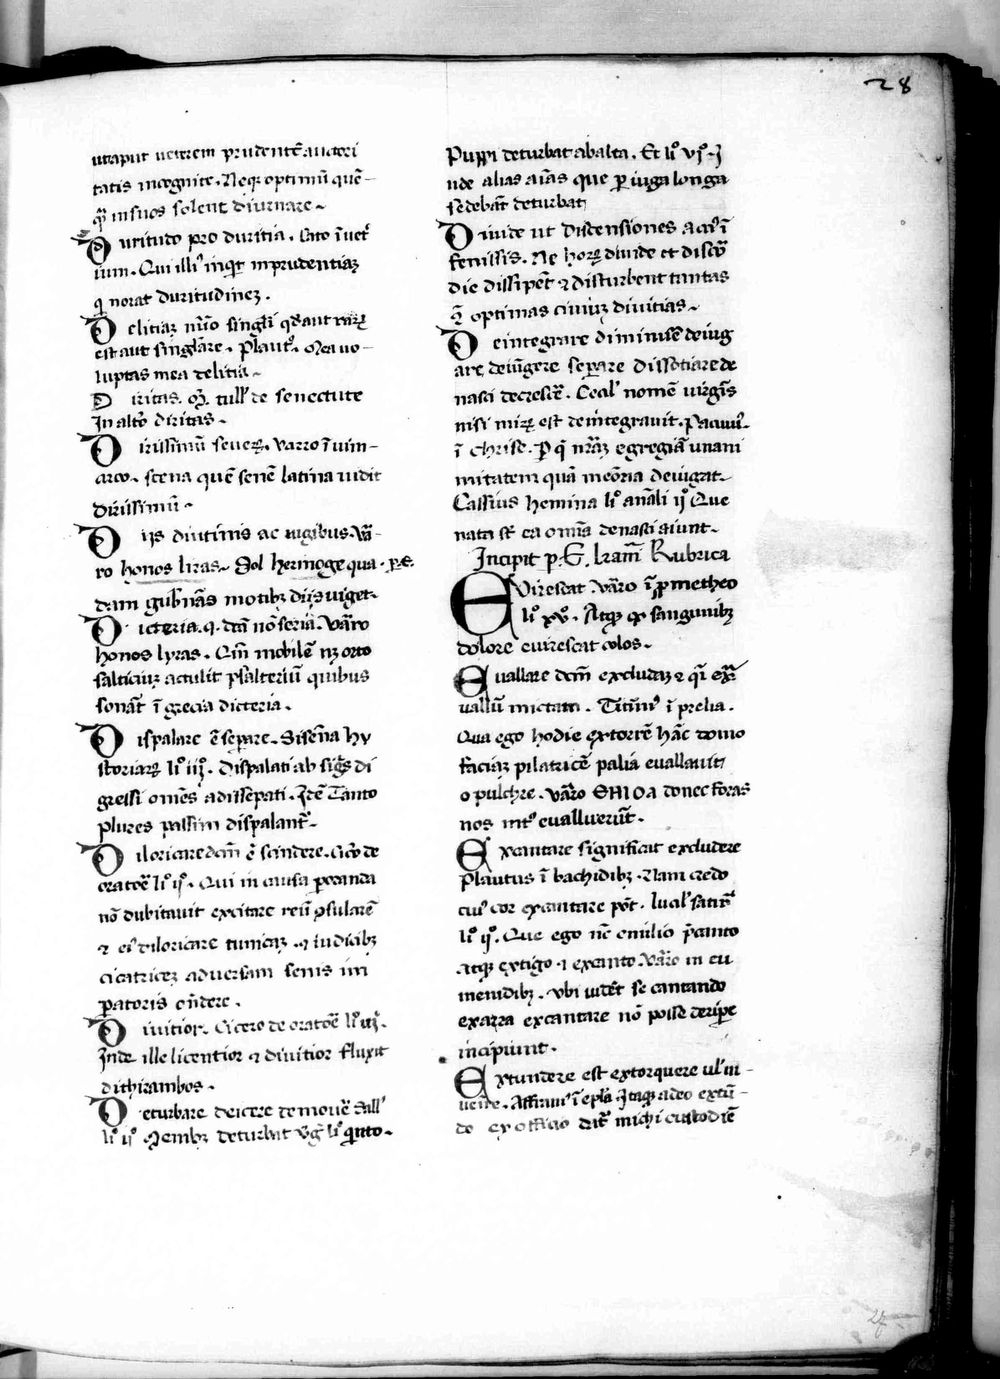 28
utaput ueterem prudentē auctori
tatis incognite. Neq; optimū quē-
q̄ȝ in suos solent diurnare.
Duritudo pro duritia. Cato ī uet'
ium. Qui illi' inquit inprudentiaȝ
q̇ norat duritudineȝ.
Delitiaȝ nūo singl̄i qd aut raȝ
est aut singl̄are. Plaut'. Mea uo-
luptas mea delitia.
Diritas. tull' de senectute
In alto diritas.
Dirissimū seuer. Varro ī uim-
arco. scena quē senē latina uidit
dirissimū.
Diis diutinis ac iugibus. Va-
ro honos liras. Sol hermoge qua. p. e.
dam gub'nās motibȝ diis uiget.
Dicteria. q. dcā nō seria. Varro
honos lyras. Cū mobilē orto
salticiuȝ actulit psalteriū quibus
sonāt ī grecia dicteria.
Dispalare ē separe. Sisēna hy
storiaȝ li° iij°. Dispalati ab sigīs di
gressi omēs ac dissepati. Idē Tanto
plures passim dispalant'.
Diloricare dcm ē scindere. Cic'o de
oratoē li° ij°. Qui in causa peroranda
nō dubitauit excitare reū ɔsularē
⁊ ei' diloricare tunicaȝ. ⁊ iudicibȝ
cicatriceȝ aduersam senis im
patoris ōndere.
Diuitior. Cicero de oratoē li° iij°.
Inde ille licentior ⁊ diuitior fluxit
dithirambos.
Deturbare deicere demouē Sall'
li° ij° Menibȝ deturbat Vg̅ li° q̇nto.
Puppi deturbat ab alta. Et li° vj°. I
nde alias aīas que p iuga longa
sedebāt deturbat
Diuide ut disdensiones acci' ī
fenissis. Ne horȝ diuide et discor
die dissipēt ⁊ disturbent tantas
⁊ optimas ciuiuȝ diuitias.
Deintegrare diminuē deiug
are, deiūgere separare dissotiare de
nasci decrescē. Cecil' nomē uirgīs
nisi miȝ est deintegrauit. Pacuui'.
ī chrise. P q̇ nr̄aȝ egregiā unani
mitatem quā meōria deiugat.
Cassius hemina li° anāli ij° Que
nata st̄ ea omīa denasci aiunt.
Incipit p. E. lrām Rubrica
Eviresćat Varo ī pmetheo
li° xv°. Atq; ex sanguinibȝ
dolore euirescat colos.
Euallare dcm̄ excludaȝ ⁊ qī ex̄
uallū mictam. Titini' ī prelia.
Qua ego hodie extorrē hāc domo
faciaȝ pilatricē palia euallauit
o pulchre. Varo donec foras
nos int' eualluerūt.
Excantare significat excludere
Plautus ī bachidibȝ. Nam credo
cui' cor excantare pōt. lucil' satir'
li° ij°. Que ego nc emilio p̄canto
atq; exigo ⁊ excanto. Varo in eu
menidibȝ. vbi uidēt se cantando
exarra excantare nō posse deripe
incipiunt.
Extundere est extorquere ul' in-
uenire. Affrani' ī epl̄a Itaq; adeo extū-
do ex officio dat' michi custodiē